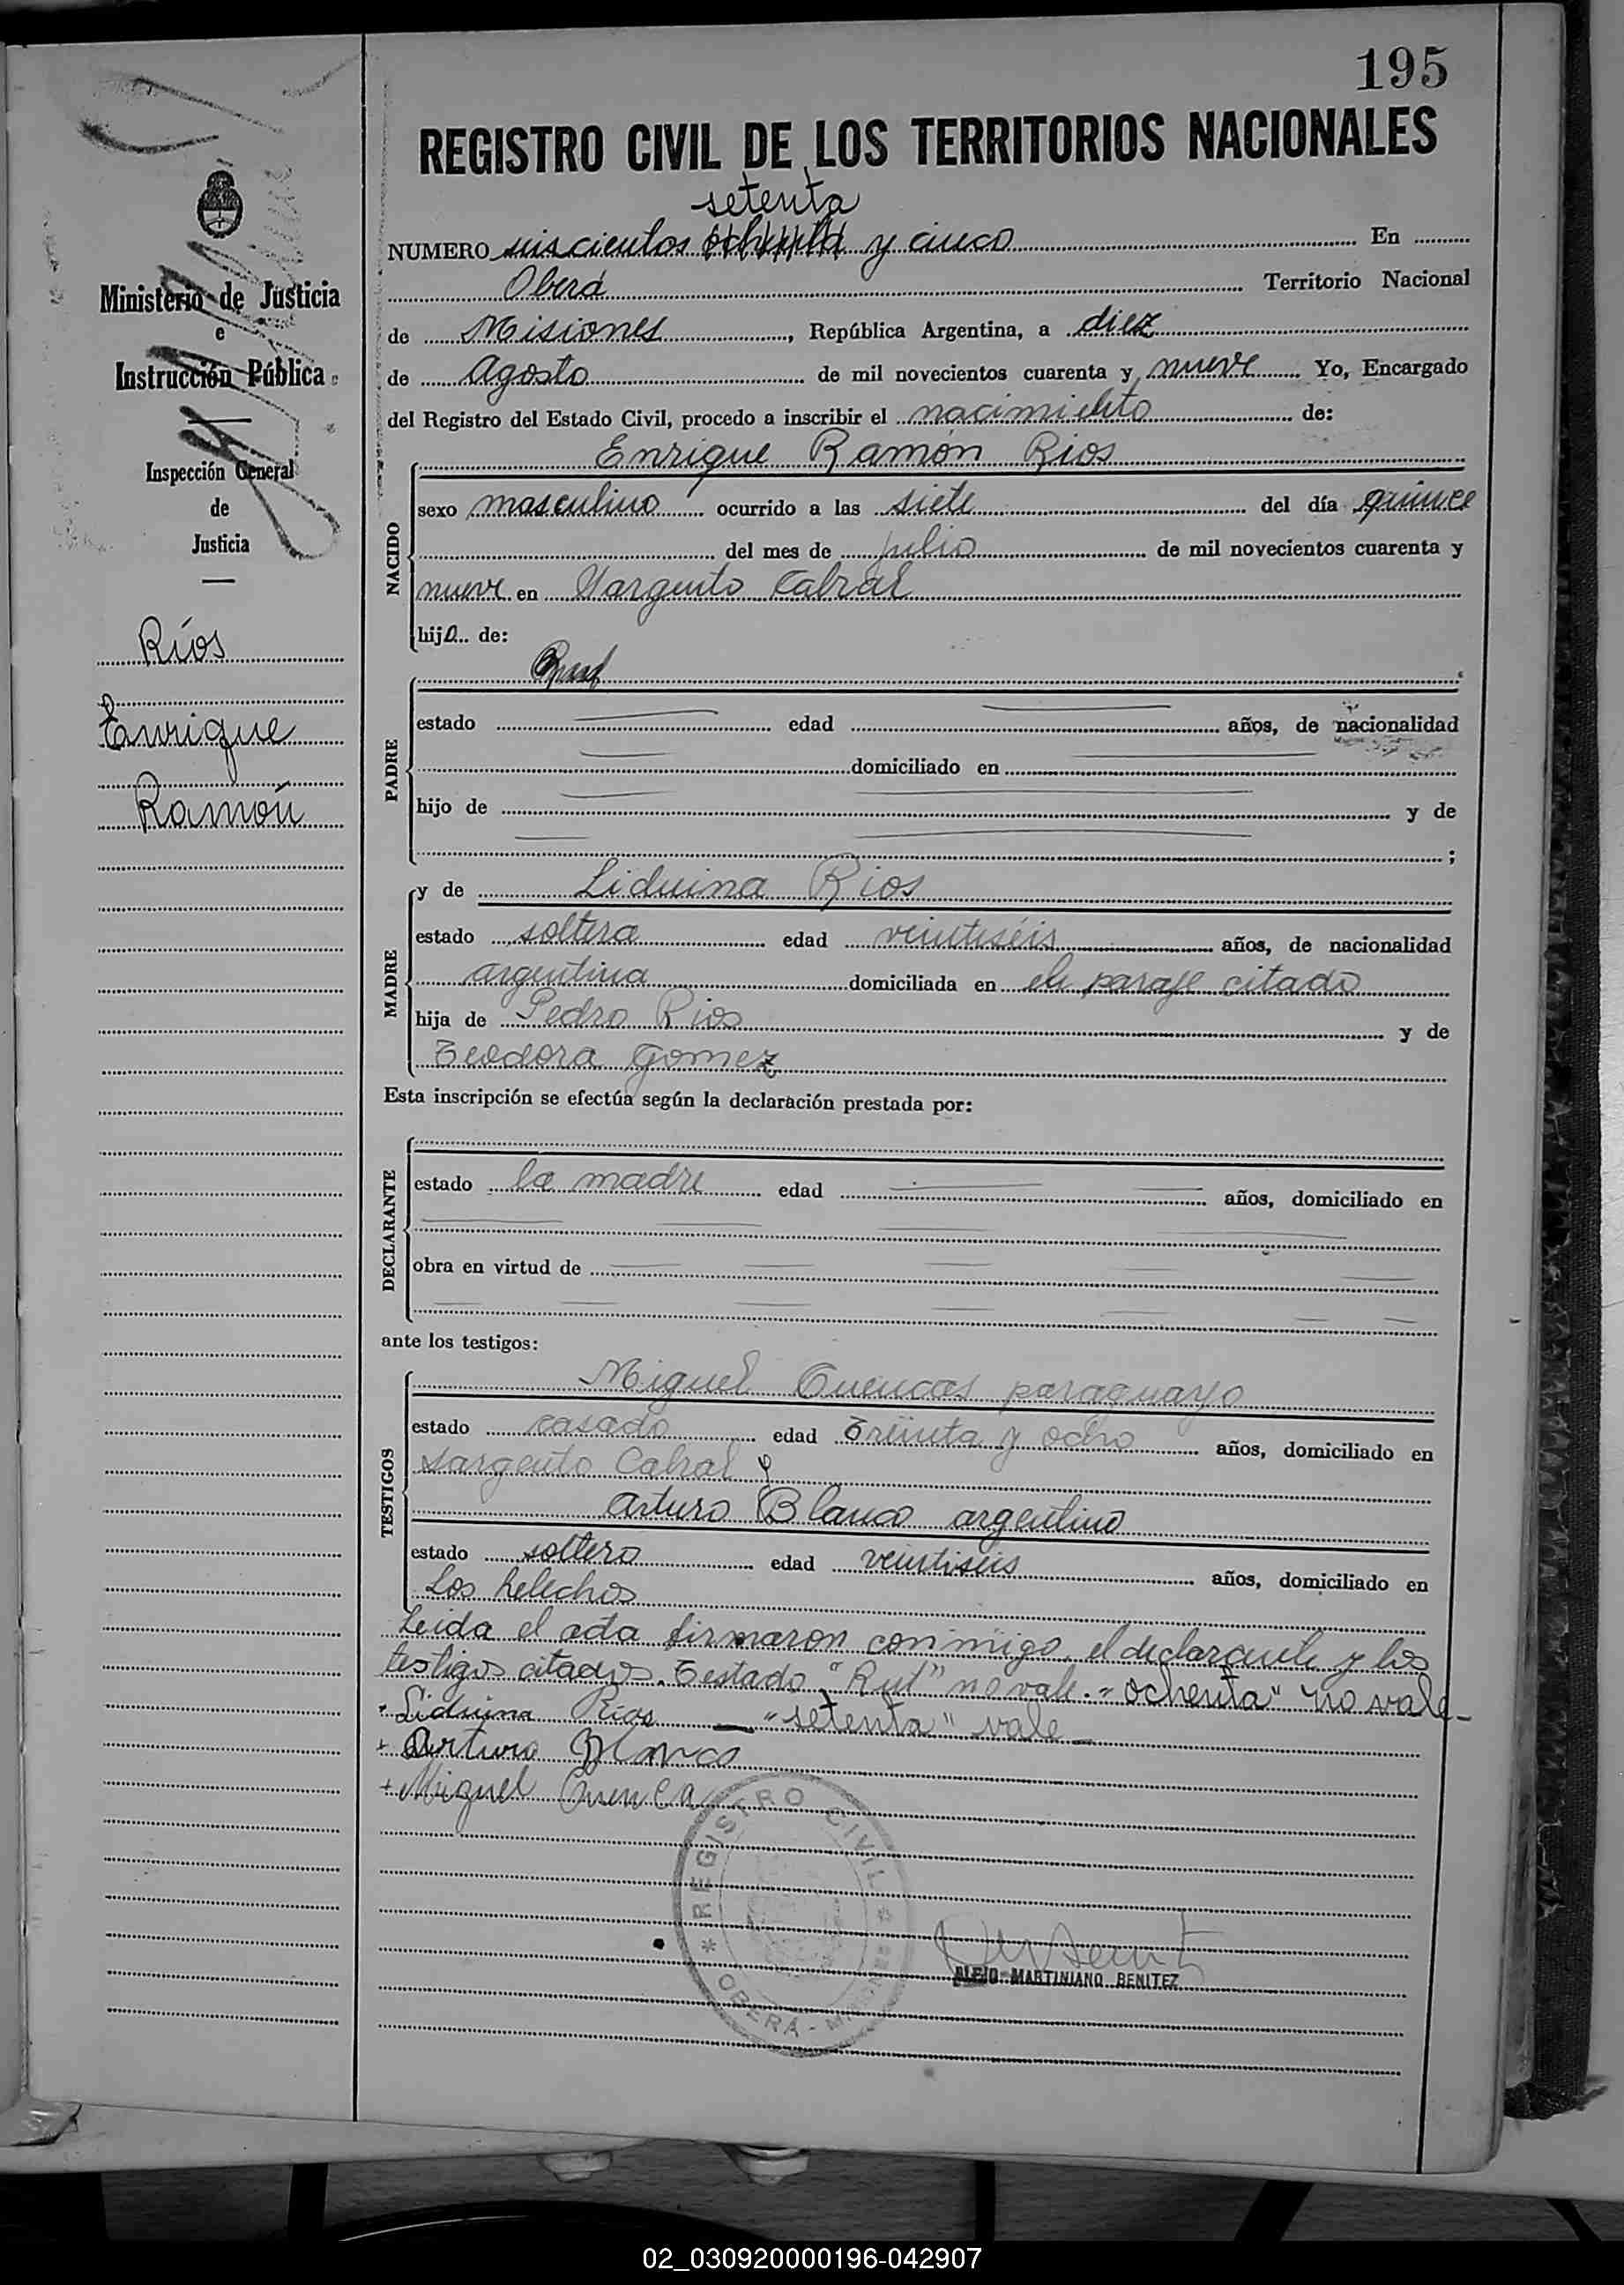 195
REGISTRO CIVIL DE LOS TERRITORIOS NACIONALES
setenta
NUMERO seiscientos ochenta y cinco En
Oberá Territorio Nacional
de Misiones, República Argentina, a diez
de Agosto de mil novecientos cuarenta y nueve Yo, Encargado
del Registro del Estado Civil, procedo a inscribir el nacimiento de:
Ministerio de Justicia
e
Instrucción Pública
Inspección General
de
Justicia
Ríos
Enrique
Ramón
NACIDO
Enrique Ramón Rios
sexo masculino ocurrido a las siete del día quince
del mes de julio de mil novecientos cuarenta y
nueve en Sargento Cabral
hijo de:
PADRE
estado edad años, de nacionalidad
domiciliado en
hijo de y de
;
MADRE
y de Liduina Rios
estado soltera edad veintiséis años, de nacionalidad
argentina domiciliada en el paraje citado
hija de Pedro Rios y de
Teodora Gomez
Esta inscripción se efectúa según la declaración prestada por:
DECLARANTE
estado la madre edad años, domiciliado en
obra en virtud de
ante los testigos:
TESTIGOS
Miguel Cuencas paraguayo
estado casado edad treinta y ocho años, domiciliado en
Sargento Cabral y
Arturo Blanco argentino
estado soltero edad veintiséis años, domiciliado en
Los helechos
Leida el acta firmaron conmigo, el declarante y los
testigos citados. Testado "Rut" no vale. "ochenta" no vale-
Liduina Rios — "setenta" vale-
Arturo Blanco
Miguel Cuenca
REGISTRO CIVIL
OBERÁ - MISIONES
ALEJO MARTINIANO BENITEZ
02_030920000196-042907